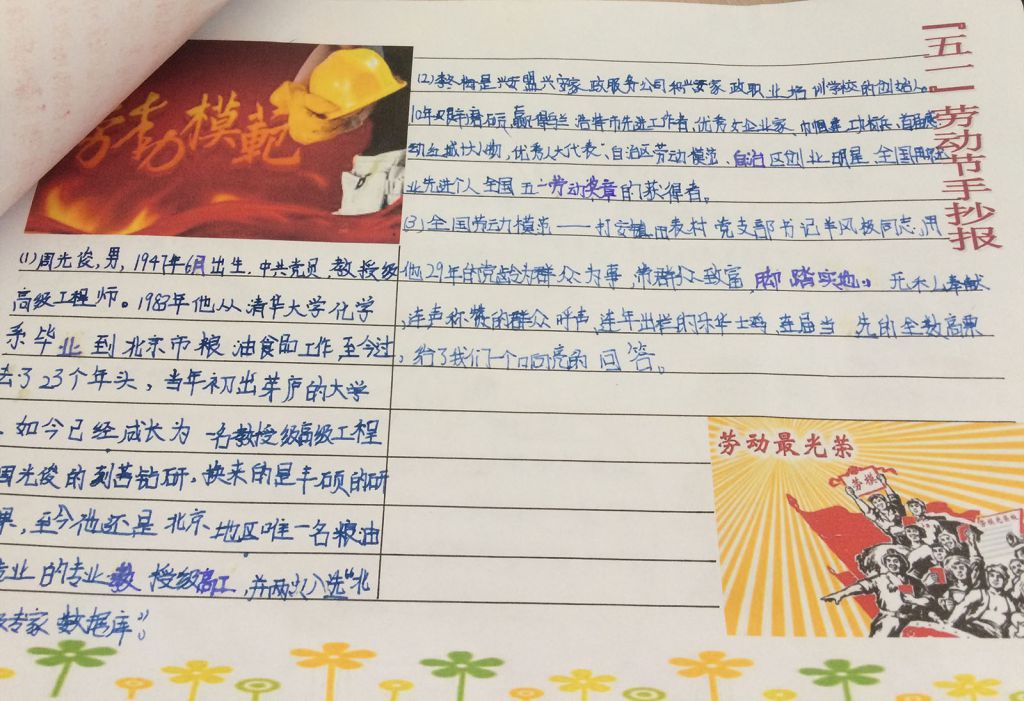 『五一』劳动节手抄报
劳动模範
(1)周光俊,男,1947年6月出生.中共党员 教授级
高级工程师。1983年他从清华大学化学
系毕业到北京市粮油食品工作,至今过
去了23个年头,当年初出茅庐的大学
如今已经成长为一名教授级高级工程
周光俊的刻苦钻研,换来的是丰硕的研
果,至今他还是北京地区唯一名粮油
业的专业教授级高工,并两次入选“北
专家数据库”。
(2)李梅是兴安盟兴安家政服务公司和兴安家政职业培训学校的创始人。
10年艰辛磨砺,赢得乌兰浩特市先进工作者,优秀女企业家、巾帼建功标兵、首届感
动红城十大人物,优秀人大代表”自治区劳动模范、自治区创业明星、全国
业先进个人全国五一劳动奖章的获得者。
(3)全国劳动模范——打安镇田表村党支部书记羊风极同志,用
他29年的党龄为群众为事,带群众致富,脚踏实地。无私奉献
,连声称赞的群众呼声,连年出栏的乐华土鸡,每届当先的全数高票
,给了我们一个响亮的回答。
劳动最光荣
劳模